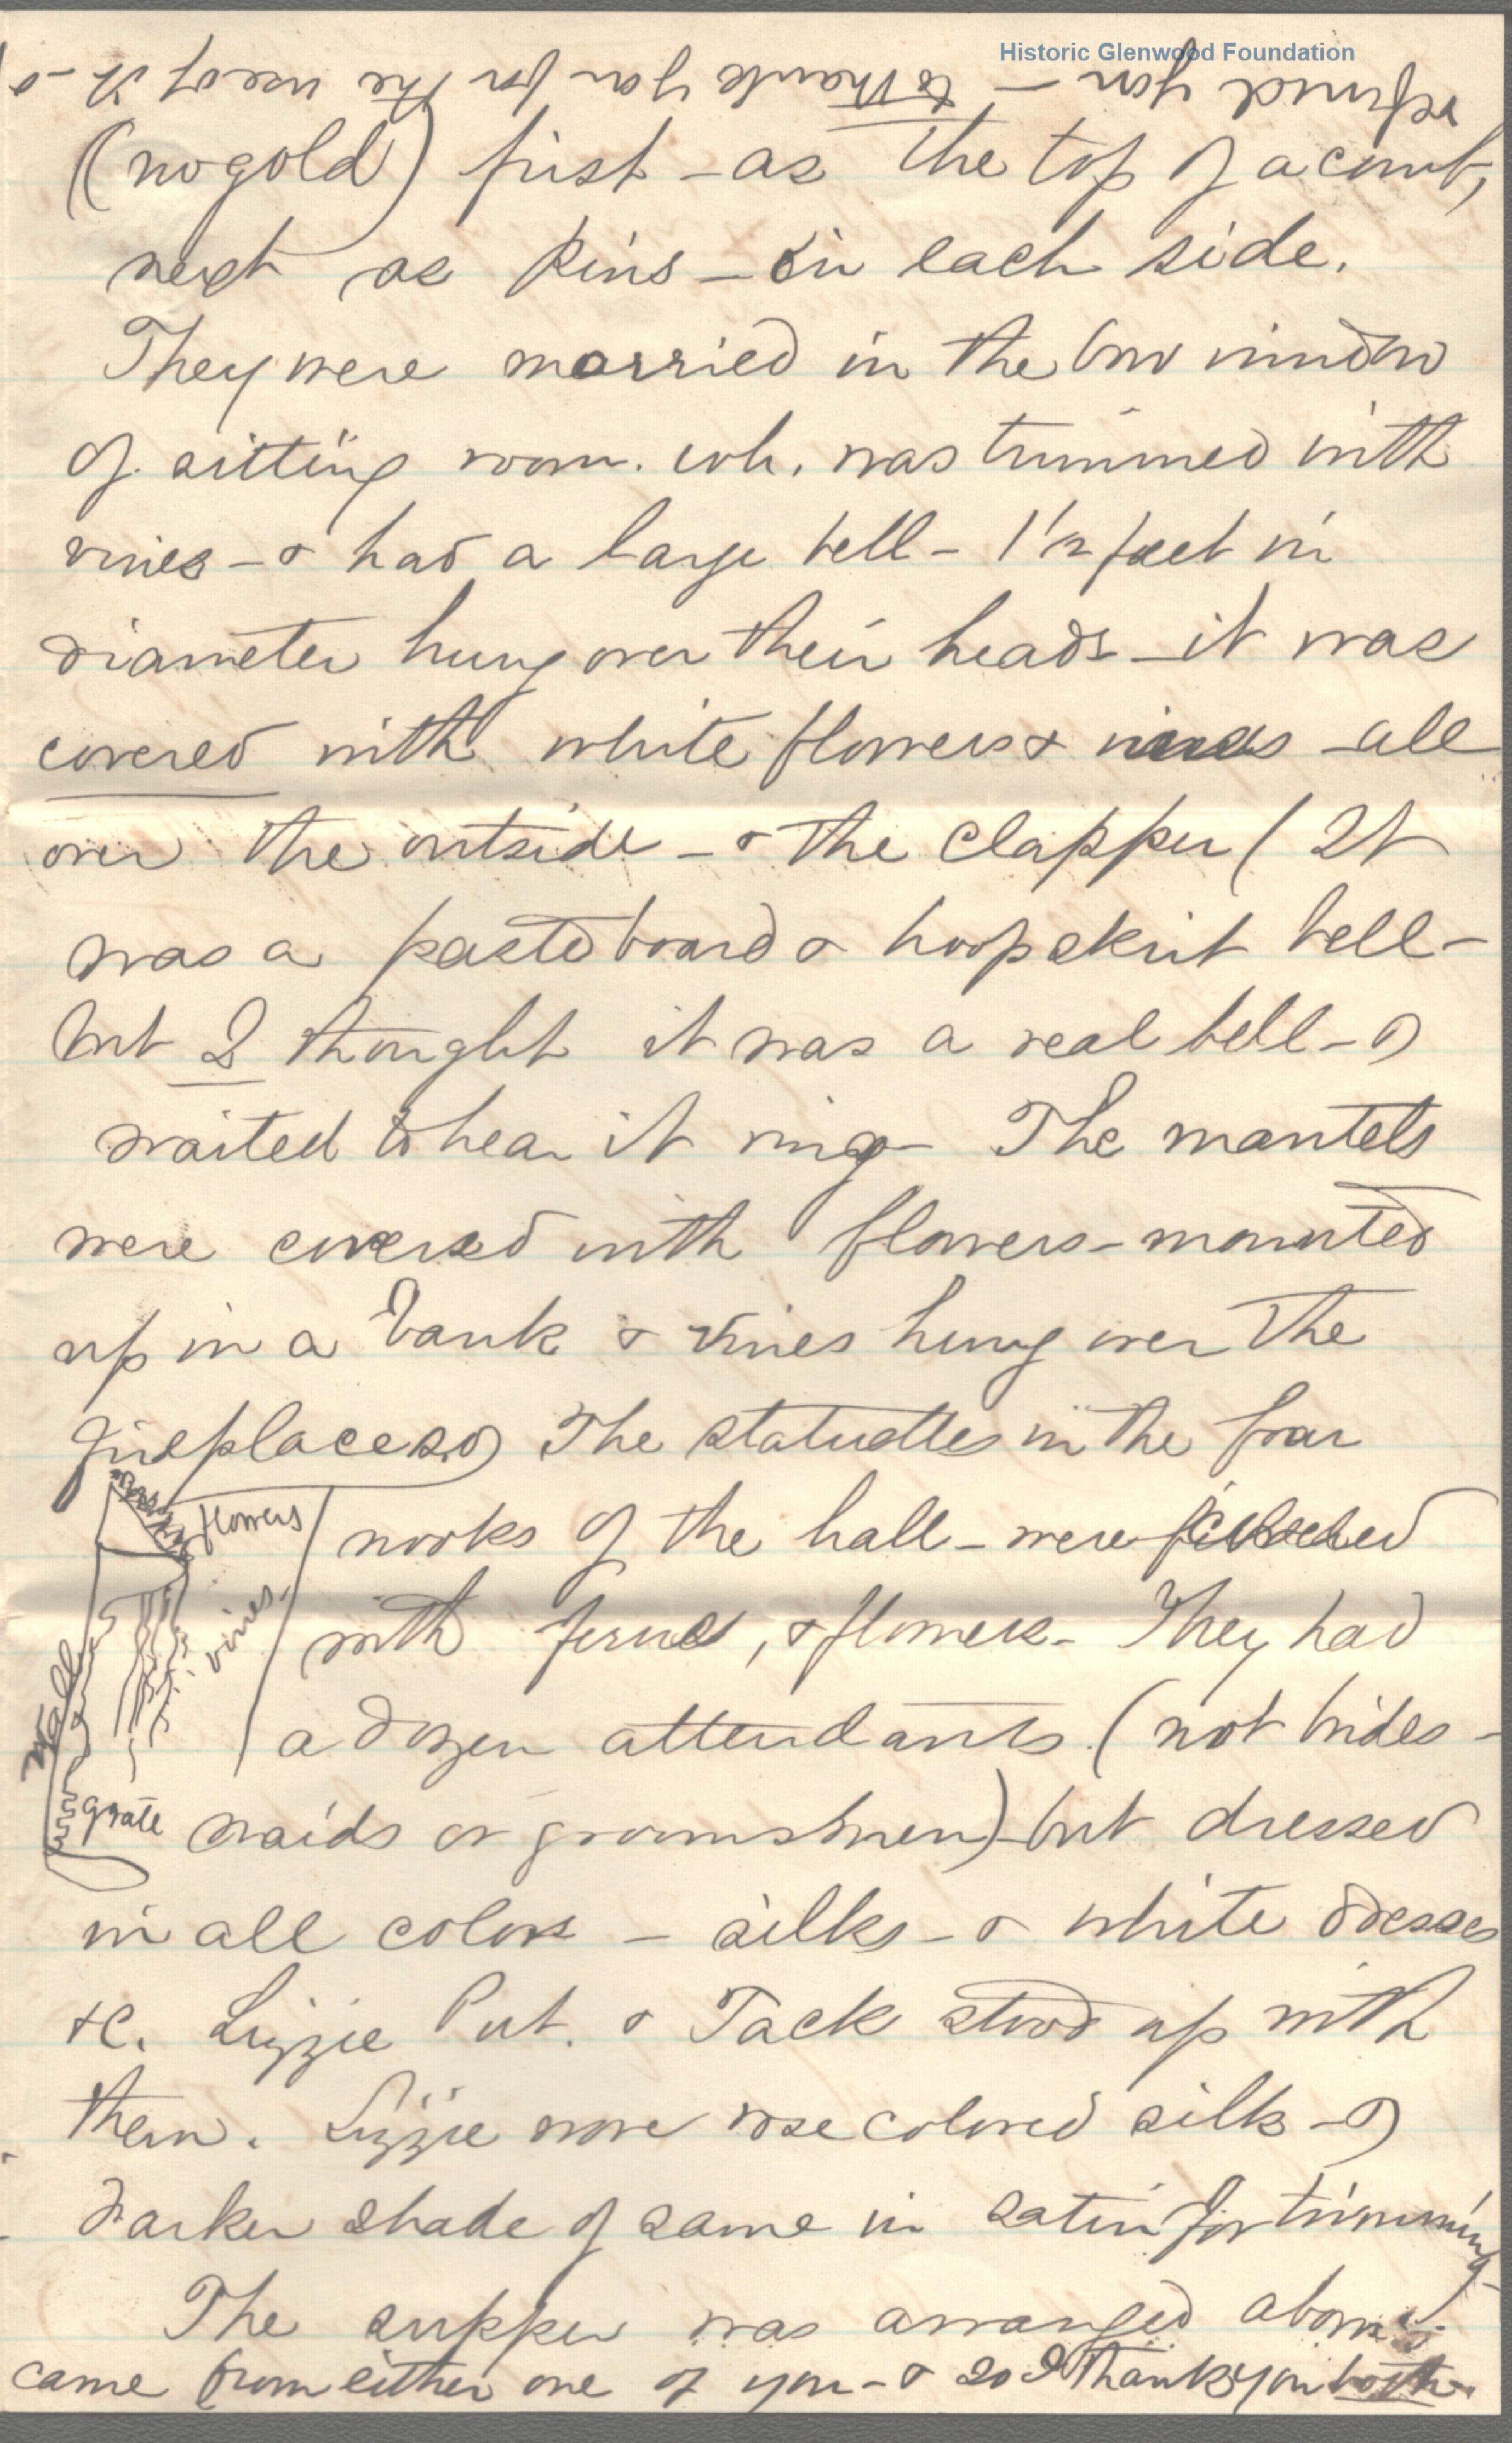 Historic Glenwood Foundation
refund you — to thank you for the use of it - &
(no gold) first - as the top of a comb,
next as pins - on each side.
They were married in the bow window
of sitting room. wh. was trimmed with
vines - & had a large bell - 1 1/2 feet in
diameter hung over their heads - it was
covered with white flowers & vines - all
over the outside - & the clapper ( It
was a pasteboard & hoopskirt bell -
but I thought it was a real bell - &
waited to hear it ring - The mantels
were covered with flowers - mounted
up in a bank & vines hung over the
fireplaces. The statuettes in the four
flowers
nooks of the hall - were
vines.
with ferns, & flowers - They had
wall
a dozen attendants (not brides-
grate
maids or groomsmen) - but dressed
in all colors - silks - & white dresses
&c. Lizzie Put. & Jack stood up with
them. Lizzie wore rose colored silk - &
darker shade of same in satin for trimming -
The supper was arranged
came from either one of you - & so I thank you both.